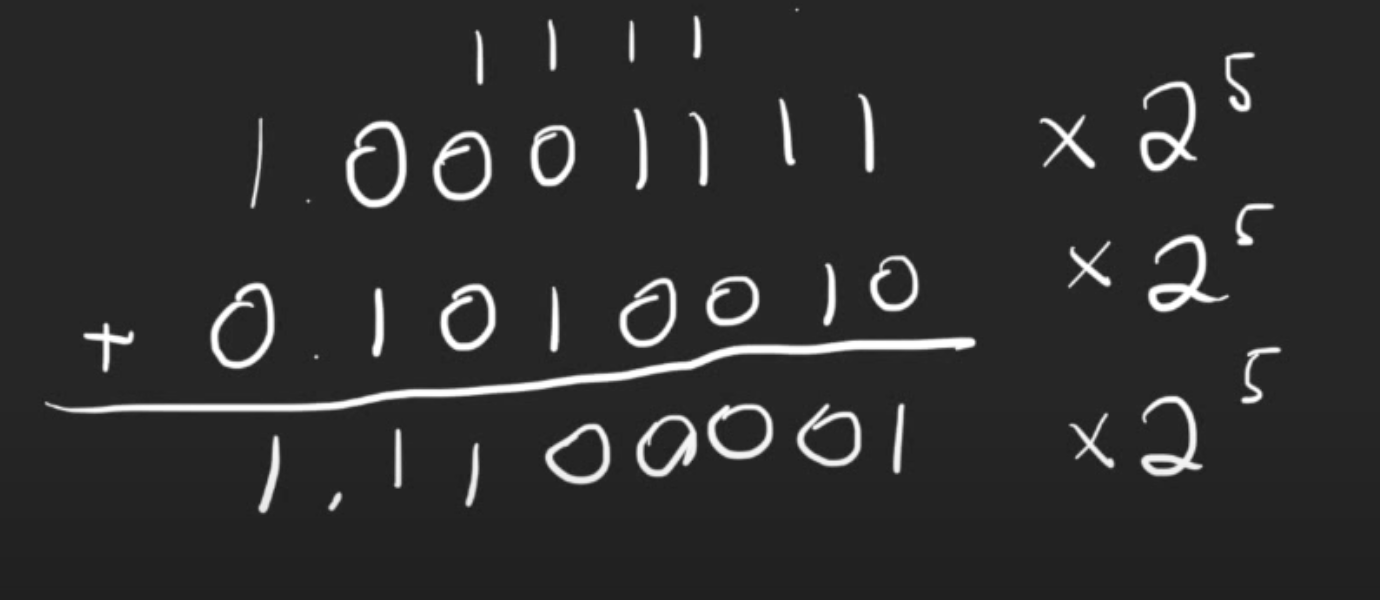 1 1 1 1
1.0001111 × 2⁵
+ 0.1010010 × 2⁵
1.1100001 × 2⁵